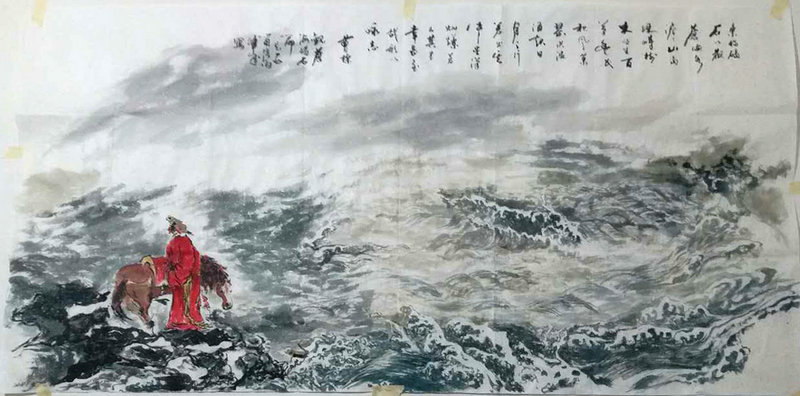 东临碣
石以观
沧海水何
澹澹山岛
竦峙树
木丛生百
草丰茂
秋风萧
瑟洪波
涌起日
月之行
若出其
中星汉
灿烂若
出其里
幸甚至
哉歌以
咏志
曹操
观沧